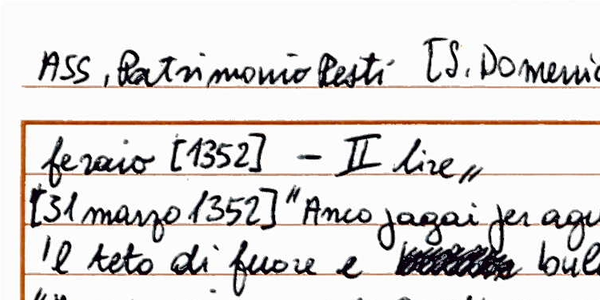 ASS, Patrimonio Resti [S. Domenic
feraio [1352] - II lire"
[31 marzo 1352] "Anco pagai per agu
'l teto di fuore e bull